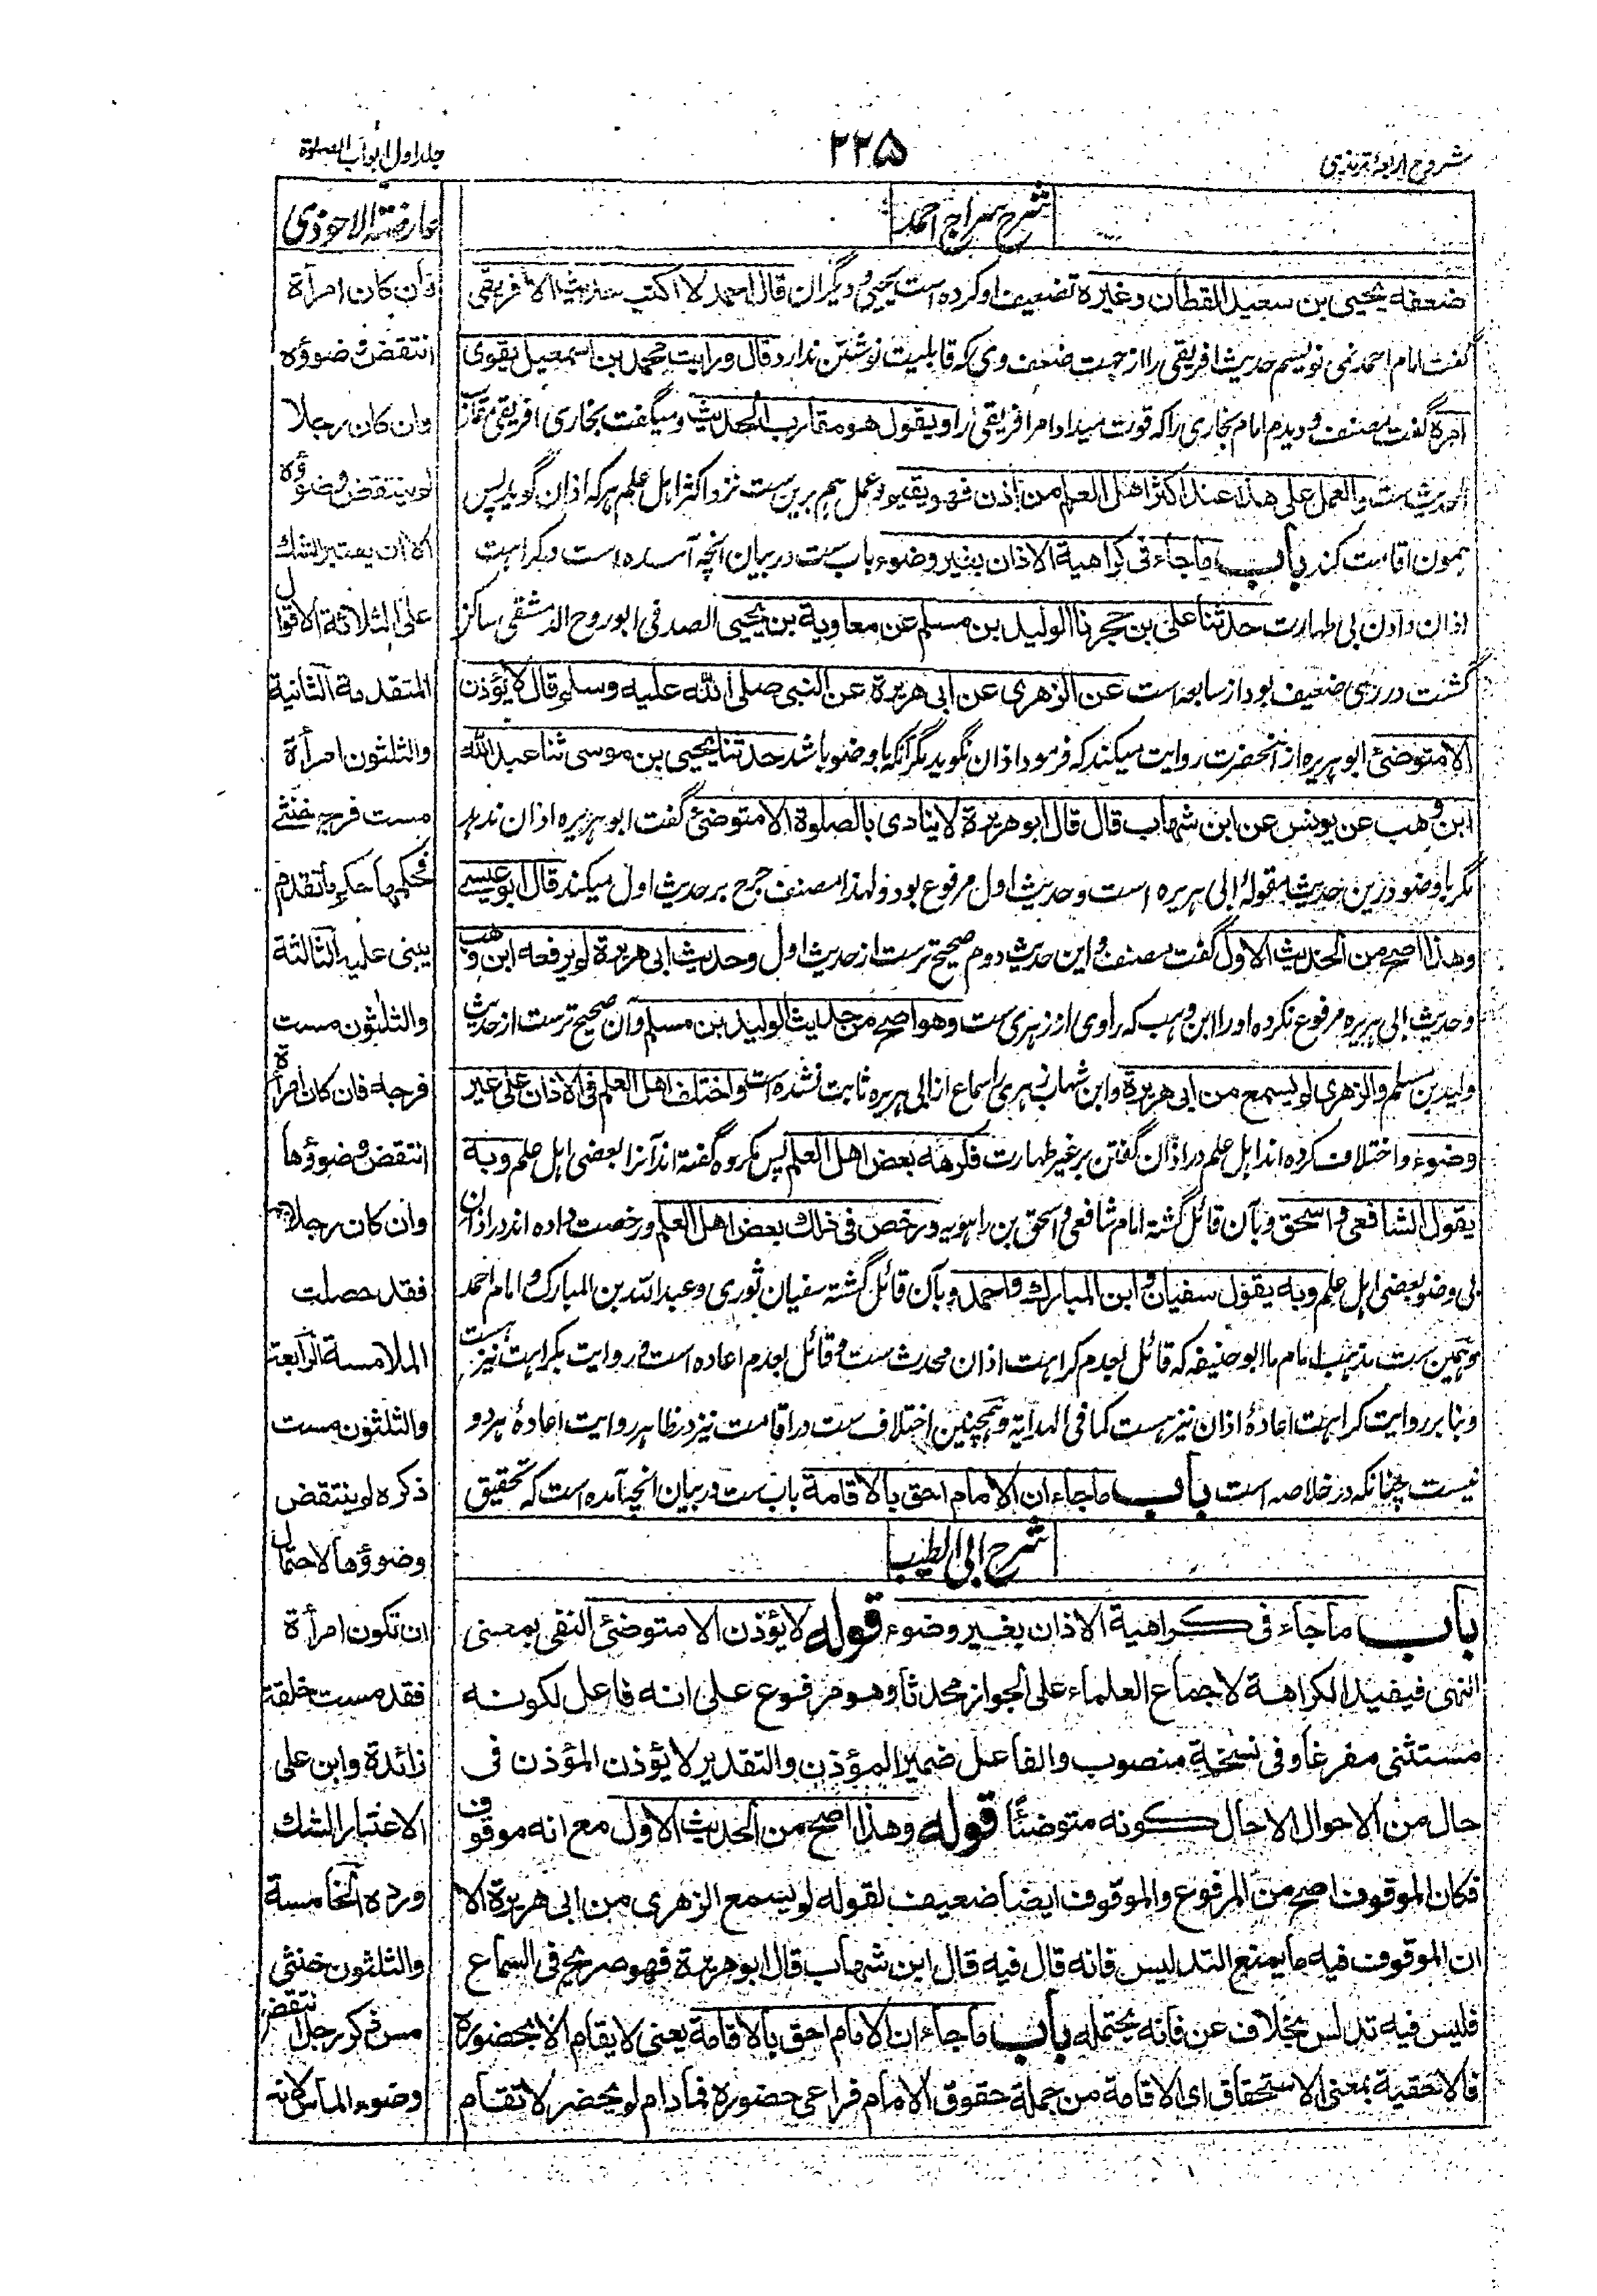 شروح اربعۂ ترمذی
۲۲۵
جلد اول ابواب الصلوة
شرح سراج احمد
ضعفه يحيى بن سعيد القطان وغيره تضعیف او کرده است یحیی و دیگران قال احمد لا اكتب حديث الافريقى
گفت امام احمد نمی نویسم حدیث افریقی را از جهت ضعف وی که قابلیت نوشتن ندارد قال ورايت محمد بن اسمعيل يقوى
امره گفت مصنف و دیدم امام بخاری را که قوت میداد امر افریقی را ويقول هو مقارب الحديث و میگفت بخاری افریقی مقارب
الحدیث ست والعمل على هذا عند اكثر اهل العلم من اذن فهو يقيم و عمل هم برین ست نزد اکثر اهل علم هر که اذان گوید پس
همون اقامت کند باب ما جاء فى كراهية الاذان بغير وضوء باب ست در بیان آنچه آمده است در کراهت
اذان دادن بی طهارت حدثنا على بن حجر نا الوليد بن مسلم عن معاوية بن يحيى الصدفى ابو روح الدمشقى ساکن
گشت در ری ضعیف بود از سابعه است عن الزهرى عن ابى هريرة عن النبى صلى الله عليه وسلم قال لا يؤذن
الا متوضئ ابو هریره از آنحضرت روایت میکند که فرمود اذان نگوید مگر آنکه با وضو باشد حدثنا يحيى بن موسى ثنا عبد الله
ابن وهب عن يونس عن ابن شهاب قال قال ابو هريرة لا ينادى بالصلوة الا متوضئ گفت ابو هریره اذان ندهد
مگر با وضو و زین حدیث مقولۂ ابی هریره است و حدیث اول مرفوع بود و لهذا مصنف جرح بر حدیث اول میکند قال ابو عيسى
وهذا اصح من الحديث الاول گفت مصنف و این حدیث دوم صحیح ترست از حدیث اول وحديث ابى هريرة لم يرفعه ابن وهب
و حدیث ابی هریره مرفوع نکرده او را ابن وهب که راوی از زهری ست وهو اصح من حديث الوليد بن مسلم و آن صحیح ترست از حدیث
ولید بن مسلم والزهرى لم يسمع من ابى هريرة و ابن شهاب زهری را سماع از ابی هریره ثابت نشده است واختلف اهل العلم فى الاذان على غير
وضوء و اختلاف کرده اند اهل علم در اذان گفتن بر غیر طهارت فكرهه بعض اهل العلم پس مکروه گفته اند آنرا بعضی اهل علم وبه
يقول الشافعى واسحق و بآن قائل گشته امام شافعی و اسحق بن راهویه ورخص فى ذلك بعض اهل العلم و رخصت داده اند در اذان
بی وضو بعضی اهل علم وبه يقول سفيان وابن المبارك واحمد و بآن قائل گشته سفیان ثوری و عبد الله بن المبارک و امام احمد
و همین ست مذهب امام ما ابو حنیفه که قائل بعدم کراهت اذان محدث ست و قائل بعدم اعاده است و روایت بکراهت نیز هست
و بنا بر روایت کراهت اعادۂ اذان نیز هست کما فی الهدایة و همچنین اختلاف ست در اقامت نیز در ظاهر روایت اعادۂ هر دو
نیست چنانکه در خلاصه است باب ما جاء ان الامام احق بالاقامة باب ست در بیان آنچه آمده است که تحقیق
شرح ابی الطیب
باب ما جاء فى كراهية الاذان بغير وضوء قوله لا يؤذن الا متوضئ النفى بمعنى
النهى فيفيد الكراهة لاجماع العلماء على الجواز محدثا وهو مرفوع على انه فاعل لكونه
مستثنى مفرغا وفى نسخة منصوب والفاعل ضمير المؤذن والتقدير لا يؤذن المؤذن فى
حال من الاحوال الا حال كونه متوضئًا قوله وهذا اصح من الحديث الاول مع انه موقوف
فكان الموقوف اصح من المرفوع والموقوف ايضا ضعيف لقوله لم يسمع الزهرى من ابى هريرة الا
ان الموقوف فيه ما يمنع التدليس فانه قال فيه قال ابن شهاب قال ابو هريرة فهو صريح فى السماع
فليس فيه تدلس بخلاف عن فانه يحتمله باب ما جاء ان الامام احق بالاقامة يعنى لا يقام الا بحضوره
فالاحقية بمعنى الاستحقاق اى الاقامة من جملة حقوق الامام فراعى حضوره فما دام لم يحضر لا تقام
عارضة الاحوذى
فان كان امرأة
انتقض وضوؤه
وان كان رجلا
لم ينتقض وضوؤه
الا ان يعتبر الشك
على الثلاثة الاقوال
المتقدمة الثانية
والثلثون امرأة
مست فرج خنثى
فحكمها حكم ما تقدم
يبنى عليه الثالثة
والثلثون مست
فرجه فان كان امرأة
انتقض وضوؤها
وان كان رجلا
فقد حصلت
الملامسة الرابعة
والثلثون مست
ذكره لم ينتقض
وضوؤها لاحتمال
ان تكون امرأة
فقد مست خلقة
زائدة وابن على
الاعتبار الشك
ورده الخامسة
والثلثون خنثى
مس ذكر رجل انتقض
وضوء الماس لانه